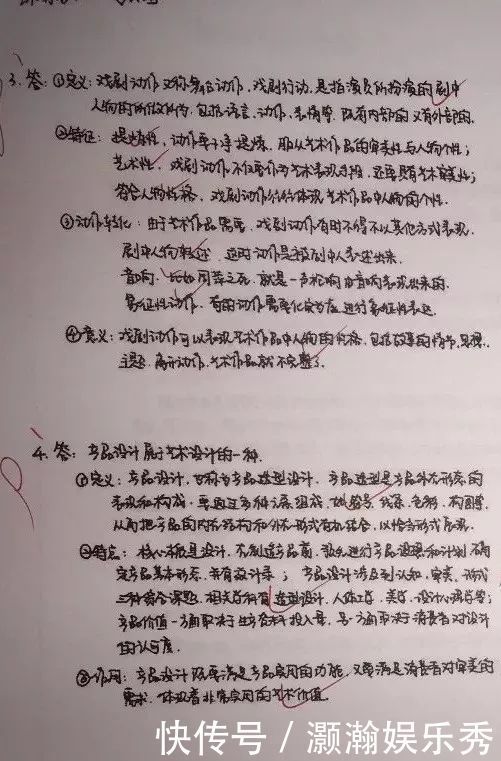 3. 答: ①定义: 戏剧动作又称舞台动作、戏剧行动, 是指演员所扮演的剧中
人物的所做所为, 包括语言、动作、表情等, 既有内部的又有外部的.
②特征: 提炼性, 动作要干净提炼, 服从艺术作品的审美性与人物个性;
艺术性, 戏剧动作不仅要作为艺术表现手段, 还要具有艺术审美性;
符合人物性格, 戏剧动作往往体现艺术作品中人物的个性.
③动作转化: 由于艺术作品需要, 戏剧动作有时不得不以其他方式表现.
剧中人物转述, 这时动作是被剧中人表述出来.
音响, 比如周萍之死, 就是一声枪响由音响表现出来的.
象征性动作, 有的动作需要化实为虚, 进行象征性表达.
④意义: 戏剧动作可以表现艺术作品中人物的性格, 包括故事的情节、思想、
主题, 离开动作, 艺术作品就不完整了.
4. 答: 产品设计属于艺术设计的一种.
①定义: 产品设计, 也称为产品造型设计. 产品造型是产品外在形态的
表现和构成, 要通过多种元素组成, 线条、色彩、构图等,
从而把产品的内在结构和外在形式有机结合, 以恰当形式展现.
②特点: 核心极是设计, 在制造产品前, 预先进行产品设想和计划, 确
定产品基本形态, 并有设计录; 产品设计涉及到认知、审美、形式
三种综合课题, 相关学科有造型设计、人体工学、美学、设计心理学等;
产品价值一方面取决于生产资料投入量, 另一方面取决于消费者对设计
的认可度.
③作用: 产品设计既要满足产品实用的功能, 又要满足消费者对审美的
需求, 体现着非常实用的艺术价值.
快传号 / 灏瀚娱乐秀